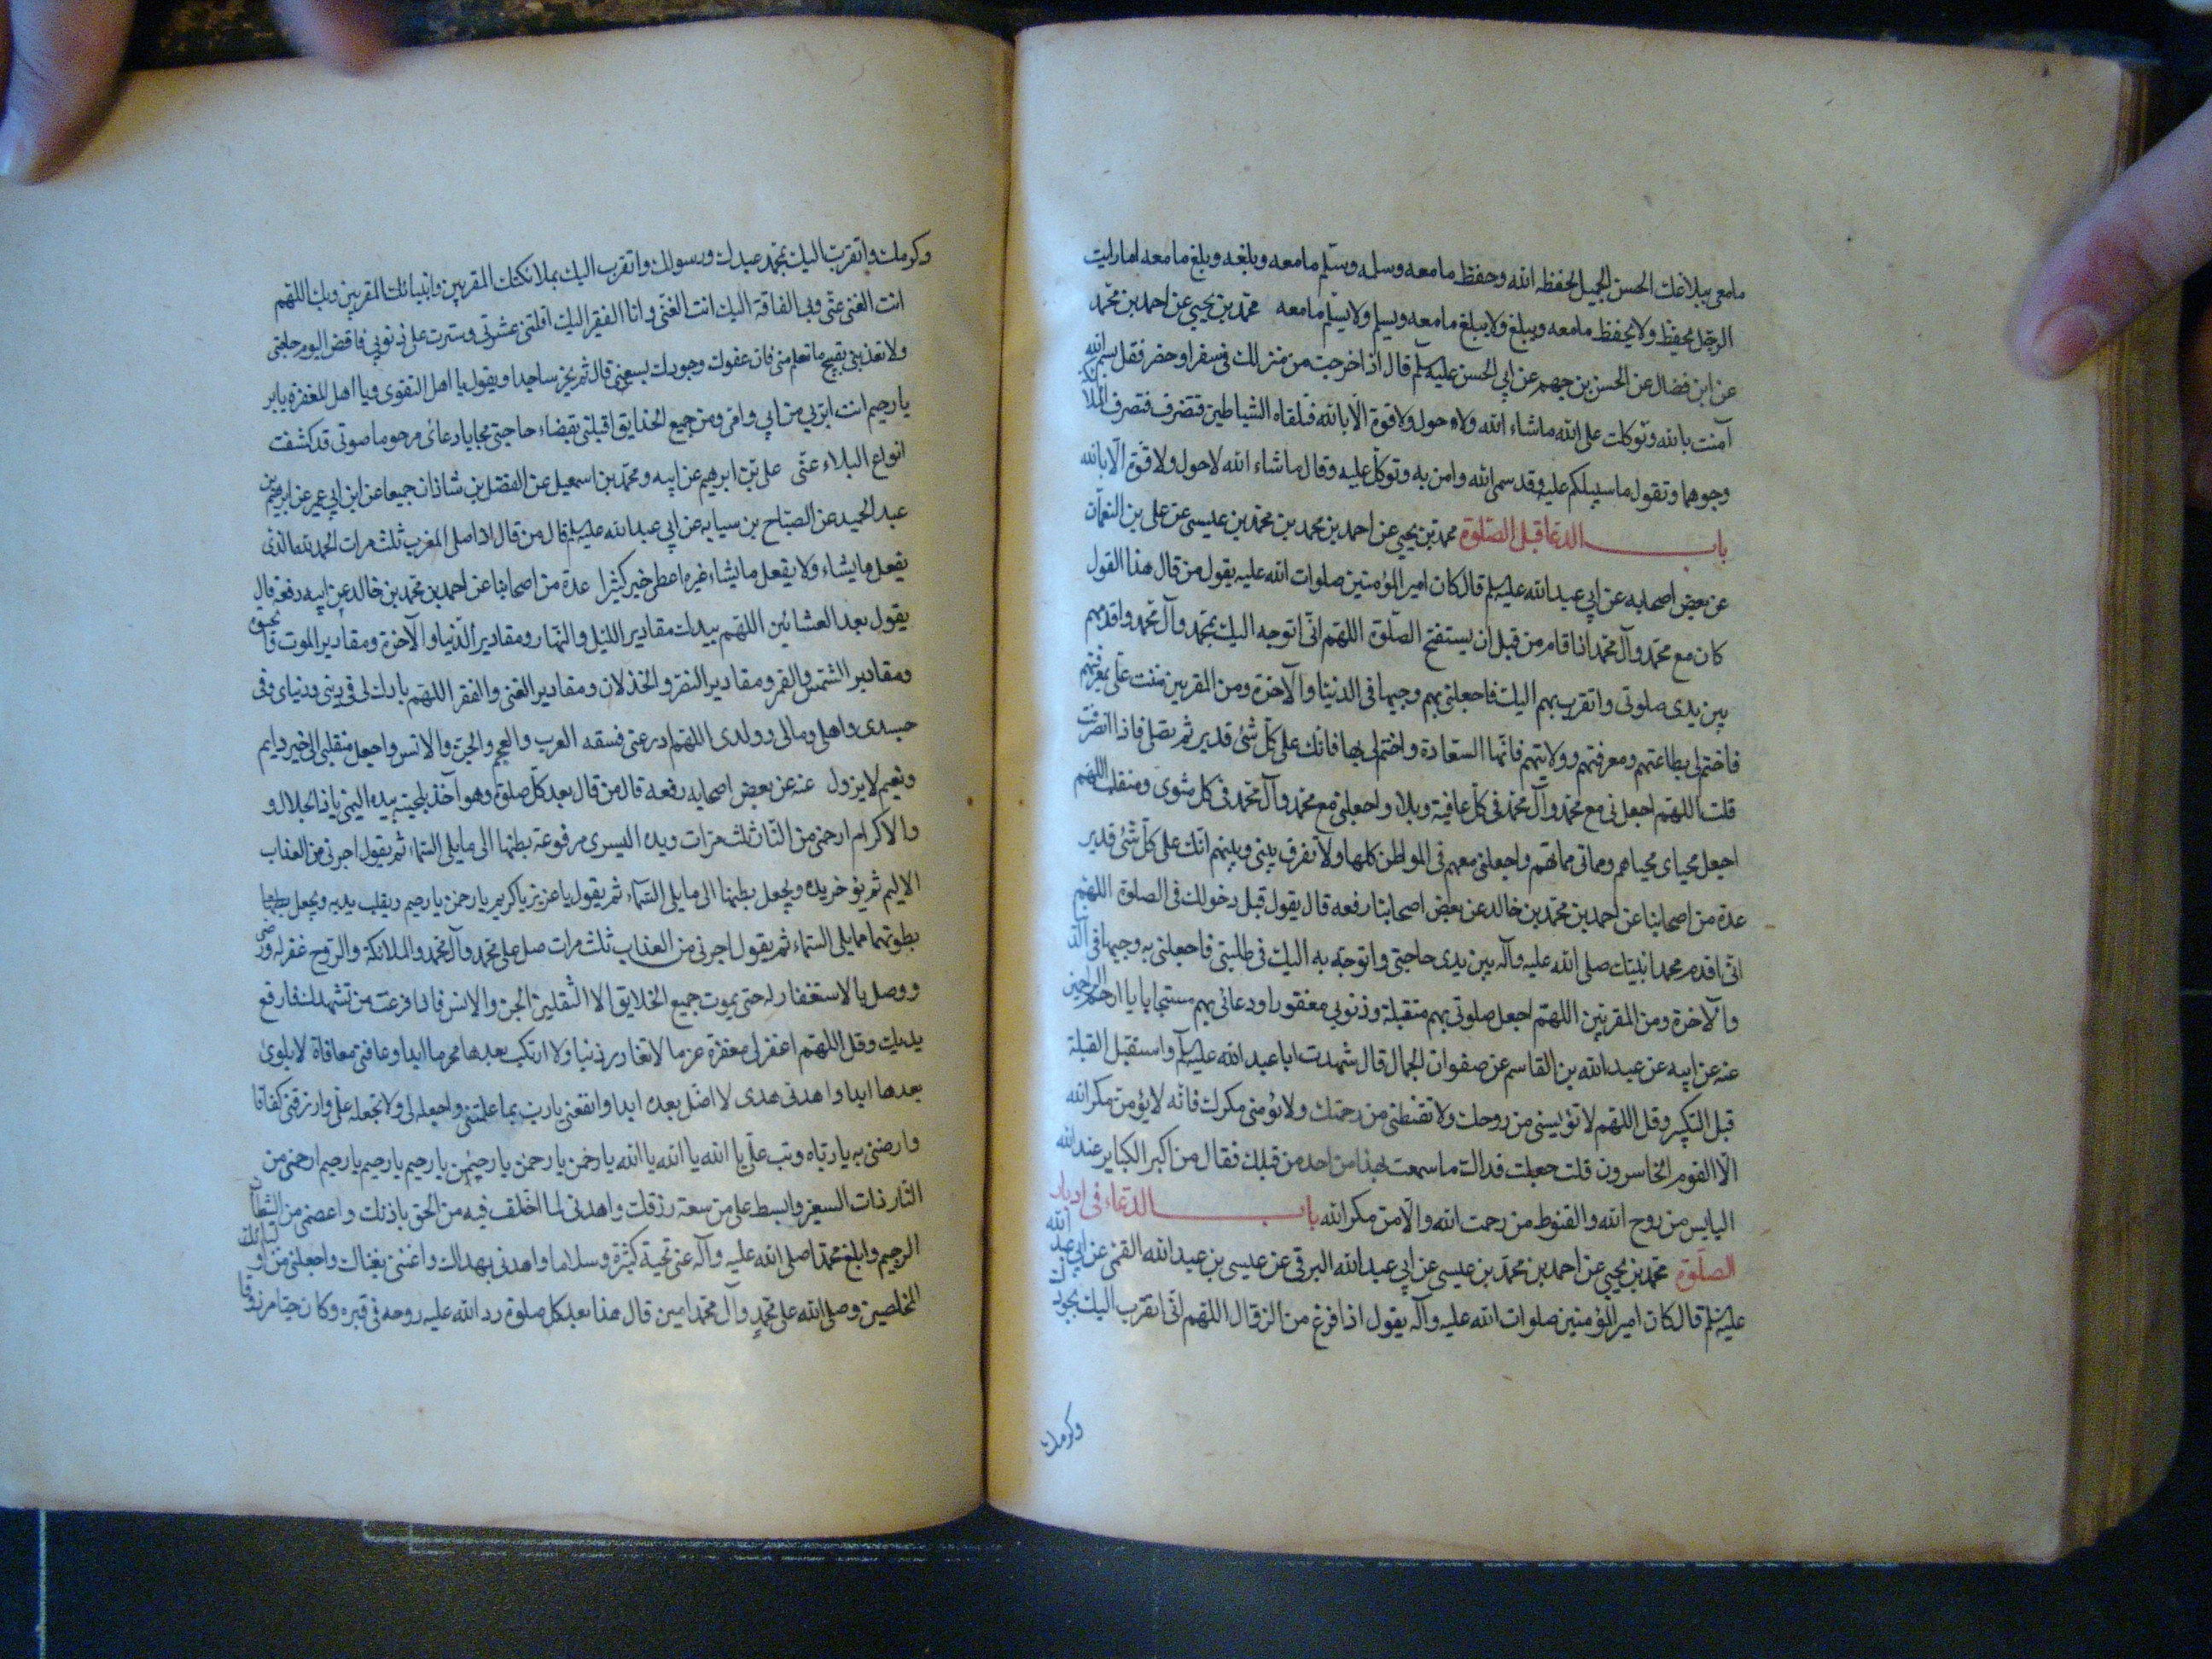 مامعى ببلاغك الحسن الجميل لحفظه الله وحفظ مامعه وسلمه وسلّم مامعه وبلغه وبلغ مامعه اما رايت
الرجل يحفظ ولا يحفظ مامعه ويبلغ ولا يبلغ مامعه ويسلم ولا يسلم مامعه محمّد بن يحيى عن احمد بن محمّد
عن ابن فضال عن الحسن بن جهم عن ابى الحسن عليه سلم قال اذا خرجت من منزلك فى سفر او حضر فقل بسم الله
آمنت بالله وتوكلت على الله ماشاء الله ولا حول ولا قوة الّا بالله فتلقاه الشياطين فتضرف فتصرف الملائكة
وجوهها وتقول ما سبيلكم عليه وقد سمى الله وامن به وتوكّل عليه وقال ماشاء الله لا حول ولا قوّة الّا بالله
باب الدعا قبل الصّلوة محمد بن يحيى عن احمد بن محمد بن محمّد بن عيسى عن على بن النعمان
عن بعض اصحابه عن ابى عبد الله عليه سلم قال كان امير المؤمنين صلوات الله عليه يقول من قال هذا القول
كان مع محمّد وآل محمّد اذا قام من قبل ان يستفتح الصّلوة اللهم انّى اتوجه اليك بمحمّد وآل محمّد واقدمهم
بين يدى صلوتى واتقرب بهم اليك فاجعلنى بهم وجيها فى الدنيا والآخرة ومن المقربين مننت علىّ بمعرفتهم
فاختم لى بطاعتهم ومعرفتهم وولايتهم فانّها السّعادة واختم لى بها فانّك على كلّ شئ قدير ثم تصلى فاذا انصرفت
قلت اللهمّ اجعلنى مع محمّد وآل محمّد فى كلّ عافية وبلاء واجعلنى مع محمّد وآل محمّد فى كل مثوى ومنقلب اللهمّ
اجعل محياى محياهم ومماتى مماتهم واجعلنى معهم فى المواطن كلها ولا تفرق بينى وبينهم انّك على كلّ شئ قدير
عدة من اصحابنا عن احمد بن محمّد بن خالد عن بعض اصحابنا رفعه قال يقول قبل دخولك فى الصلوة اللهمّ
انّى اقدم محمدا نبيّك صلى الله عليه وآله بين يدى حاجتى واتوجّه به اليك فى طلبتى فاجعلنى به وجيها فى الدنيا
والآخرة ومن المقربين اللهمّ اجعل صلوتى بهم متقبلة وذنوبى مغفورا ودعائى بهم مستجابا يا ارحم الراحمين
عنه عن ابيه عن عبد الله بن القاسم عن صفوان الجمال قال شهدت ابا عبد الله عليه سلم واستقبل القبلة
قبل التكبير وقل اللهم لا تؤيسنى من روحك ولا تقنطنى من رحمتك ولا تؤمنى مكرك فانّه لا يؤمن مكر الله
الّا القوم الخاسرون قلت جعلت فداك ما سمعت بهذا من احد من قبلك فقال من اكبر الكباير عند الله
اليايس من روح الله والقنوط من رحمت الله والّامن مكر الله باب الدّعاء فى ادبار
الصلوة محمّد بن يحيى عن احمد بن محمّد بن عيسى عن ابى عبد الله البرقى عن عيسى بن عبد الله القمى عن ابى عبد الله
عليه سلم قال كان امير المؤمنين صلوات الله عليه وآله يقول اذا فرغ من الزوال اللهم انّى اتقرّب اليك بجودك
وكرمك
وكرمك واتقرب اليك بمحمّد عبدك ورسولك واتقرب اليك بملائكتك المقربين وانبيائك المقربين وبك اللهم
انت الغنى عنّى وبى الفاقة اليك انت الغنّى وانا الفقير اليك اقلتنى عشرتى وسترت على ذنوبى فاقض اليوم حاجتى
ولا تعذبنى بقبيح ما تعلم منى فان عفوك وجودك يسعنى قال ثم يخر ساجدا ويقول يا اهل التقوى ويا اهل المغفرة يا بر
يا رحيم انت ابرّ بى من ابى وامى ومن جميع الخلايق اقبلنى بقضاء حاجتى مجابا دعائى مرحوما صوتى قد كشفت
انواع البلاء عنّى على بن ابرهيم عن ابيه ومحمّد بن اسمعيل عن الفضل بن شاذان جميعا عن ابن ابى عمير عن ابرهيم بن
عبد الحميد عن الصبّاح بن سيابه عن ابى عبد الله عليه سلم قال من قال اذا صلى المغرب ثلث مرات الحمد لله الذى
يفعل ما يشاء ولا يفعل ما يشاء غيره اعطى خير كثيرا عدة من اصحابنا عن احمد بن محمّد بن خالد عن ابيه رفعه قال
يقول بعد العشائين اللهمّ بيدك مقادير الليل والنهار ومقادير الدّنيا والآخرة ومقادير الموت
ومقادير الشّمس والقمر ومقادير النصر والخذلان ومقادير الغنى والفقر اللهمّ بارك لى فى دينى ودنياى وفى
جسدى واهلى ومالى وولدى اللهم ادر عنى فسقه العرب والعجم والجن والانس واجعل منقلبى الى خير دايم
ونعيم لا يزول عنه عن بعض اصحابه رفعه قال من قال بعد كلّ صلوة وهو آخذ بلحيته بيده اليمنى يا ذا الجلال و
والاكرام ارحمنى من النّار ثلث مرّات ويده اليسرى مرفوعة بطنها الى ما يلى السّماء ثم يقول اجرنى من العذاب
الاليم ثم يؤخر يده ويجعل بطنها الى ما يلى السّماء ثم يقول يا عزيز يا كريم يا رحمن يا رحيم ويقلب يديه ويجعل بطنها
بطونهما مما يلى السّماء ثم يقول اجرنى من العذاب ثلث مرات صل على محمّد وآل محمّد والملائكة والرّوح غفر له ورضى
ووصل بالاستغفار له حتى يموت جميع الخلايق الا الثقلين الجن والانس فاذا فرغت من تشهدك فارفع
يديك وقل اللهمّ اغفر لى مغفرة عزما لا تغادر ذنبا ولا ارتكب بعدها محرما ابدا وعافنى معافاة لا بلوى
بعدها ابدا واهدنى هدى لا اضلّ بعده ابدا وانفعنى يا رب بما علمتنى واجعله لى ولا تجعله علىّ وارزقنى كفافا
وارضنى به يا ربّاه وتب علىّ يا الله يا الله يا الله يا رحمن يا رحمن يا رحمن يا رحيم يا رحيم يا رحيم ارحمنى من
النّار ذات السعير وابسط على من سعة رزقك واهدنى لما اختلف فيه من الحق باذنك واعصمنى من الشيطان
الرجيم وابلغ محمّدا صلى الله عليه وآله عنى تحية كثيرة وسلاما واهدنى بهداك واغننى بغناك واجعلنى من اوليائك
المخلصين وصلى الله على محمّد وآل محمّد امين قال هذا بعد كل صلوة رد الله عليه روحه فى قبره وكان حيّا مرزوقا